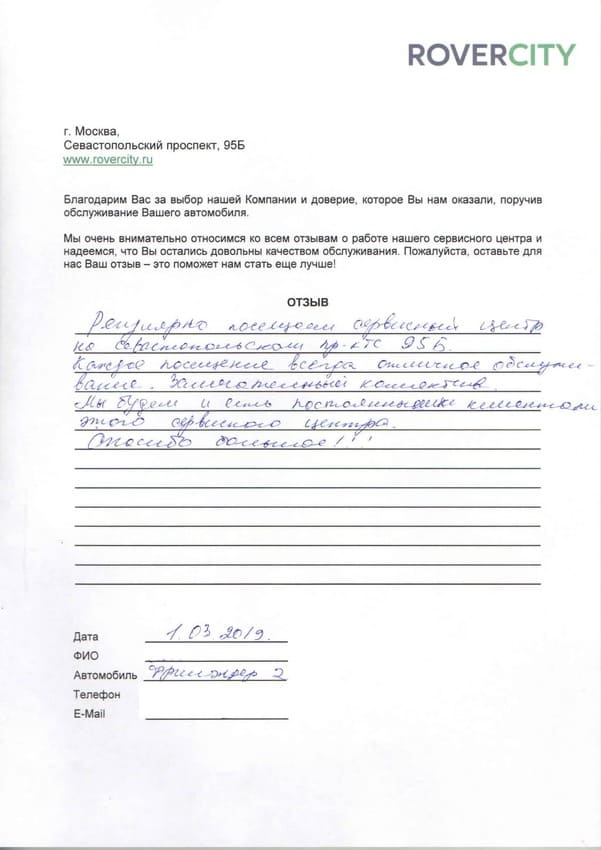 ROVERCITY
г. Москва,
Севастопольский проспект, 95Б
www.rovercity.ru
Благодарим Вас за выбор нашей Компании и доверие, которое Вы нам оказали, поручив
обслуживание Вашего автомобиля.
Мы очень внимательно относимся ко всем отзывам о работе нашего сервисного центра и
надеемся, что Вы остались довольны качеством обслуживания. Пожалуйста, оставьте для
нас Ваш отзыв – это поможет нам стать еще лучше!
ОТЗЫВ
Регулярно посещаем сервисный центр
на Севастопольском пр-кте 95Б.
Каждое посещение всегда отличное обслужи-
вание. Замечательный коллектив.
Мы будем и есть постоянными клиентами
этого сервисного центра.
Спасибо большое!!!
Дата 1.03.2019.
ФИО
Автомобиль Фрилендер 2
Телефон
E-Mail